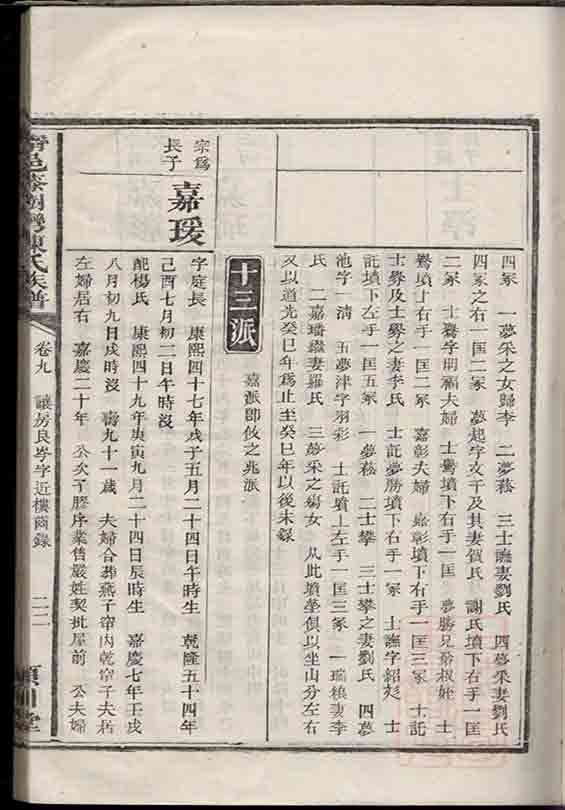 四冢　一夢采之女歸李　二夢萿　三士譕妻劉氏　四夢采妻劉氏
四冢之右一匡二冢　夢起字文千及其妻賀氏　謝氏墳下右手一匡
二冢　士譽字朝福夫婦　士譽墳下右手一匡　夢勝兄弟叔姪　士
譽墳上右手一匡二冢　嘉彰夫婦　嘉彰墳下右手一匡三冢　士託
士譽及士譽之妻李氏　士託夢勝墳下右手一冢　士譕字紹彣　士
託墳下左手一匡五冢　一夢萿　二士攀　三士攀之妻劉氏　四夢
池字　清　五夢津字羽彩　士託墳上左手一匡三冢　一瑞橈妻李
氏　二嘉璠繼妻羅氏　三夢采之殤女　从此墳塋俱以坐山分左右
又以道光癸巳年爲止至癸巳年以後未錄
十三派
嘉派即攸之兆派
宗爲
長子
嘉瑗
字庭長　康熙四十七年戊子五月二十四日午時生　乾隆五十四年
己酉七月初二日午時沒
配楊氏　康熙四十九年庚寅九月二十四日辰時生　嘉慶七年壬戌
八月初九日戌時沒　壽九十一歲　夫婦合葬燕子窩內乾窩子夫居
左婦居右　嘉慶二十年　公次子膠序業售嚴姓契批屋前　公夫婦
陳氏族譜
卷九　讓房良岑字近樓齒錄
二二
潁川堂